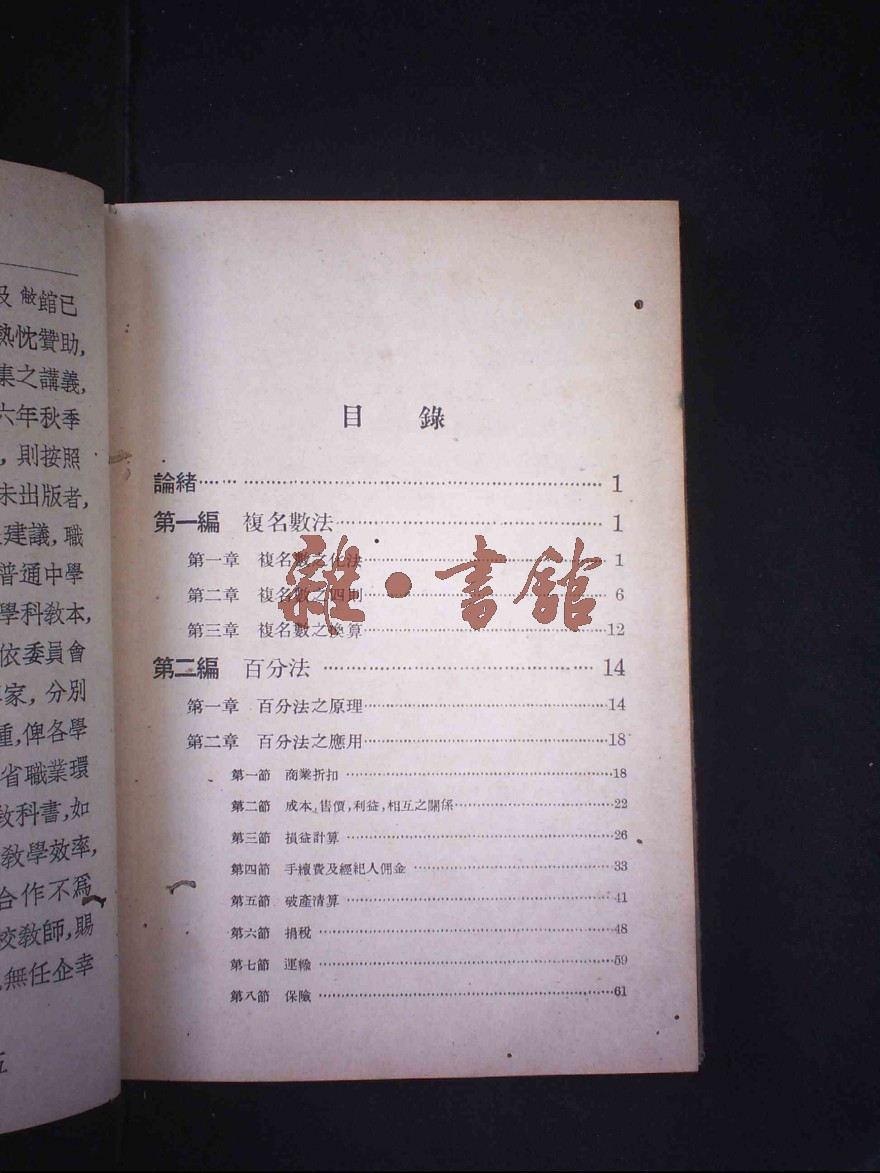 及敝館已
熱忱贊助,
集之講義,
六年秋季
,則按照
未出版者,
建議,職
普通中學
學科教本,
依委員會
家,分別
重,俾各學
省職業環
教科書,如
教學效率,
合作不爲
校教師,賜
無任企幸
五
目 錄
論緒…… 1
第一編 複名數法…… 1
第一章 複名數之化法…… 1
第二章 複名數之四則…… 6
第三章 複名數之換算……12
第二編 百分法…… 14
第一章 百分法之原理……14
第二章 百分法之應用……18
第一節 商業折扣……18
第二節 成本,售價,利益,相互之關係……22
第三節 損益計算……26
第四節 手續費及經紀人佣金……33
第五節 破產清算……41
第六節 捐稅……48
第七節 運輸……59
第八節 保險……61
雜·書館